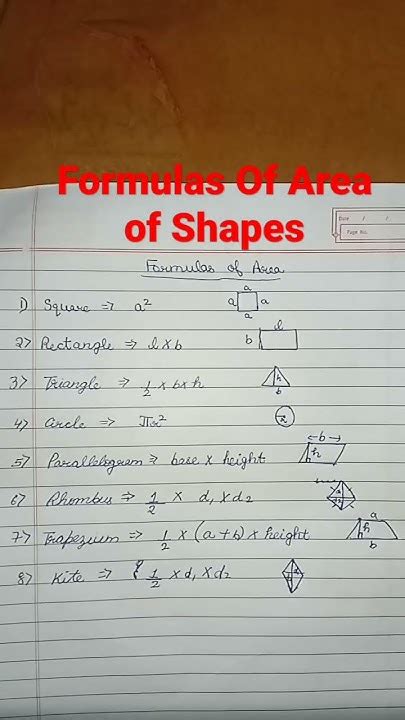 Formulas Of Area
of Shapes
Date / /
Page No.
Formulas of Area
1) Square => a²
a
a a
a
2) Rectangle => l×b
l
b
3) Triangle => 1/2 × b×h
h
b
4) Circle => πr²
r
5) Parallelogram => base × height
b
h
6) Rhombus => 1/2 × d₁×d₂
7) Trapezium => 1/2 × (a+b) × height
a
h
b
8) Kite => { 1/2 × d₁ × d₂